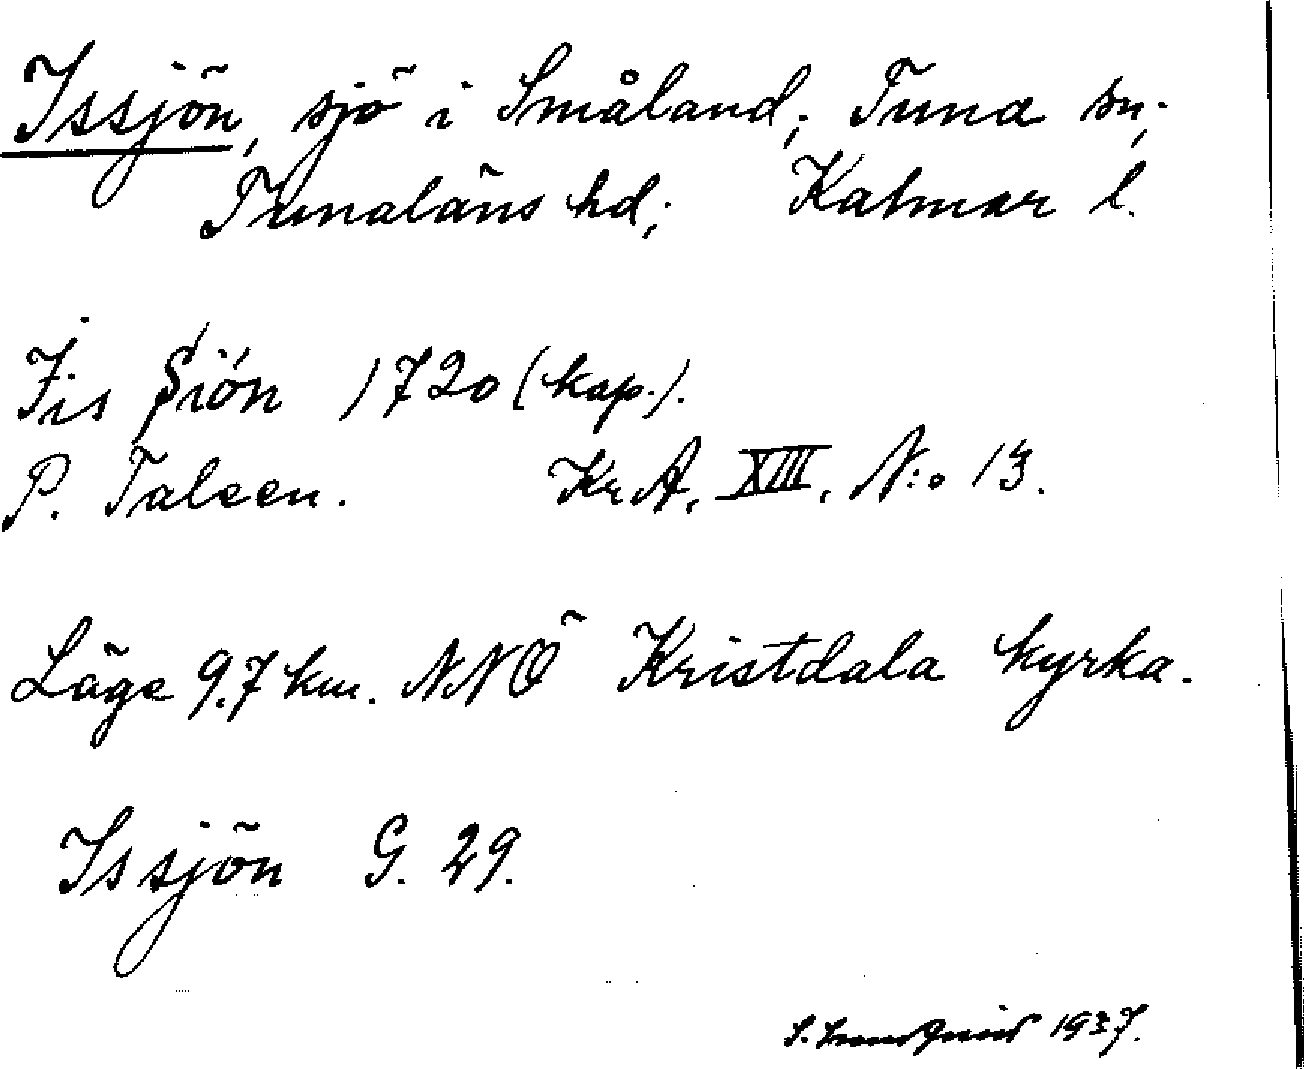 Issjön, sjö i Småland; Tuna sn;
Tunaläns hd; Kalmar l.
Jis Siön 1720 (kap.).
P. Taleen. KrA, XIII, N:o 13.
Läge 9.7 km. NNÖ Kristdala kyrka.
Issjön G. 29.
S. 1937.